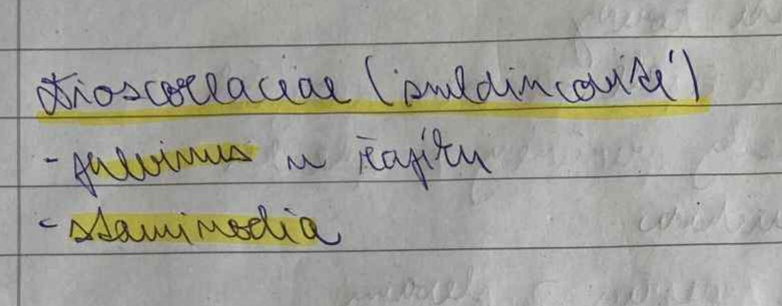 Dioscoreaceae (smldincovité)
- pulvinus u řapíku
- staminodia